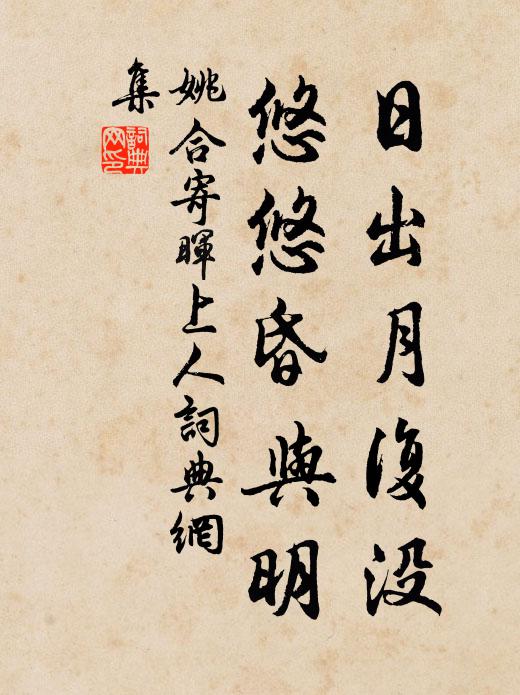 日出月復没
悠悠昏與明
姚合寄暉上人詞典網
集
詞典
网印